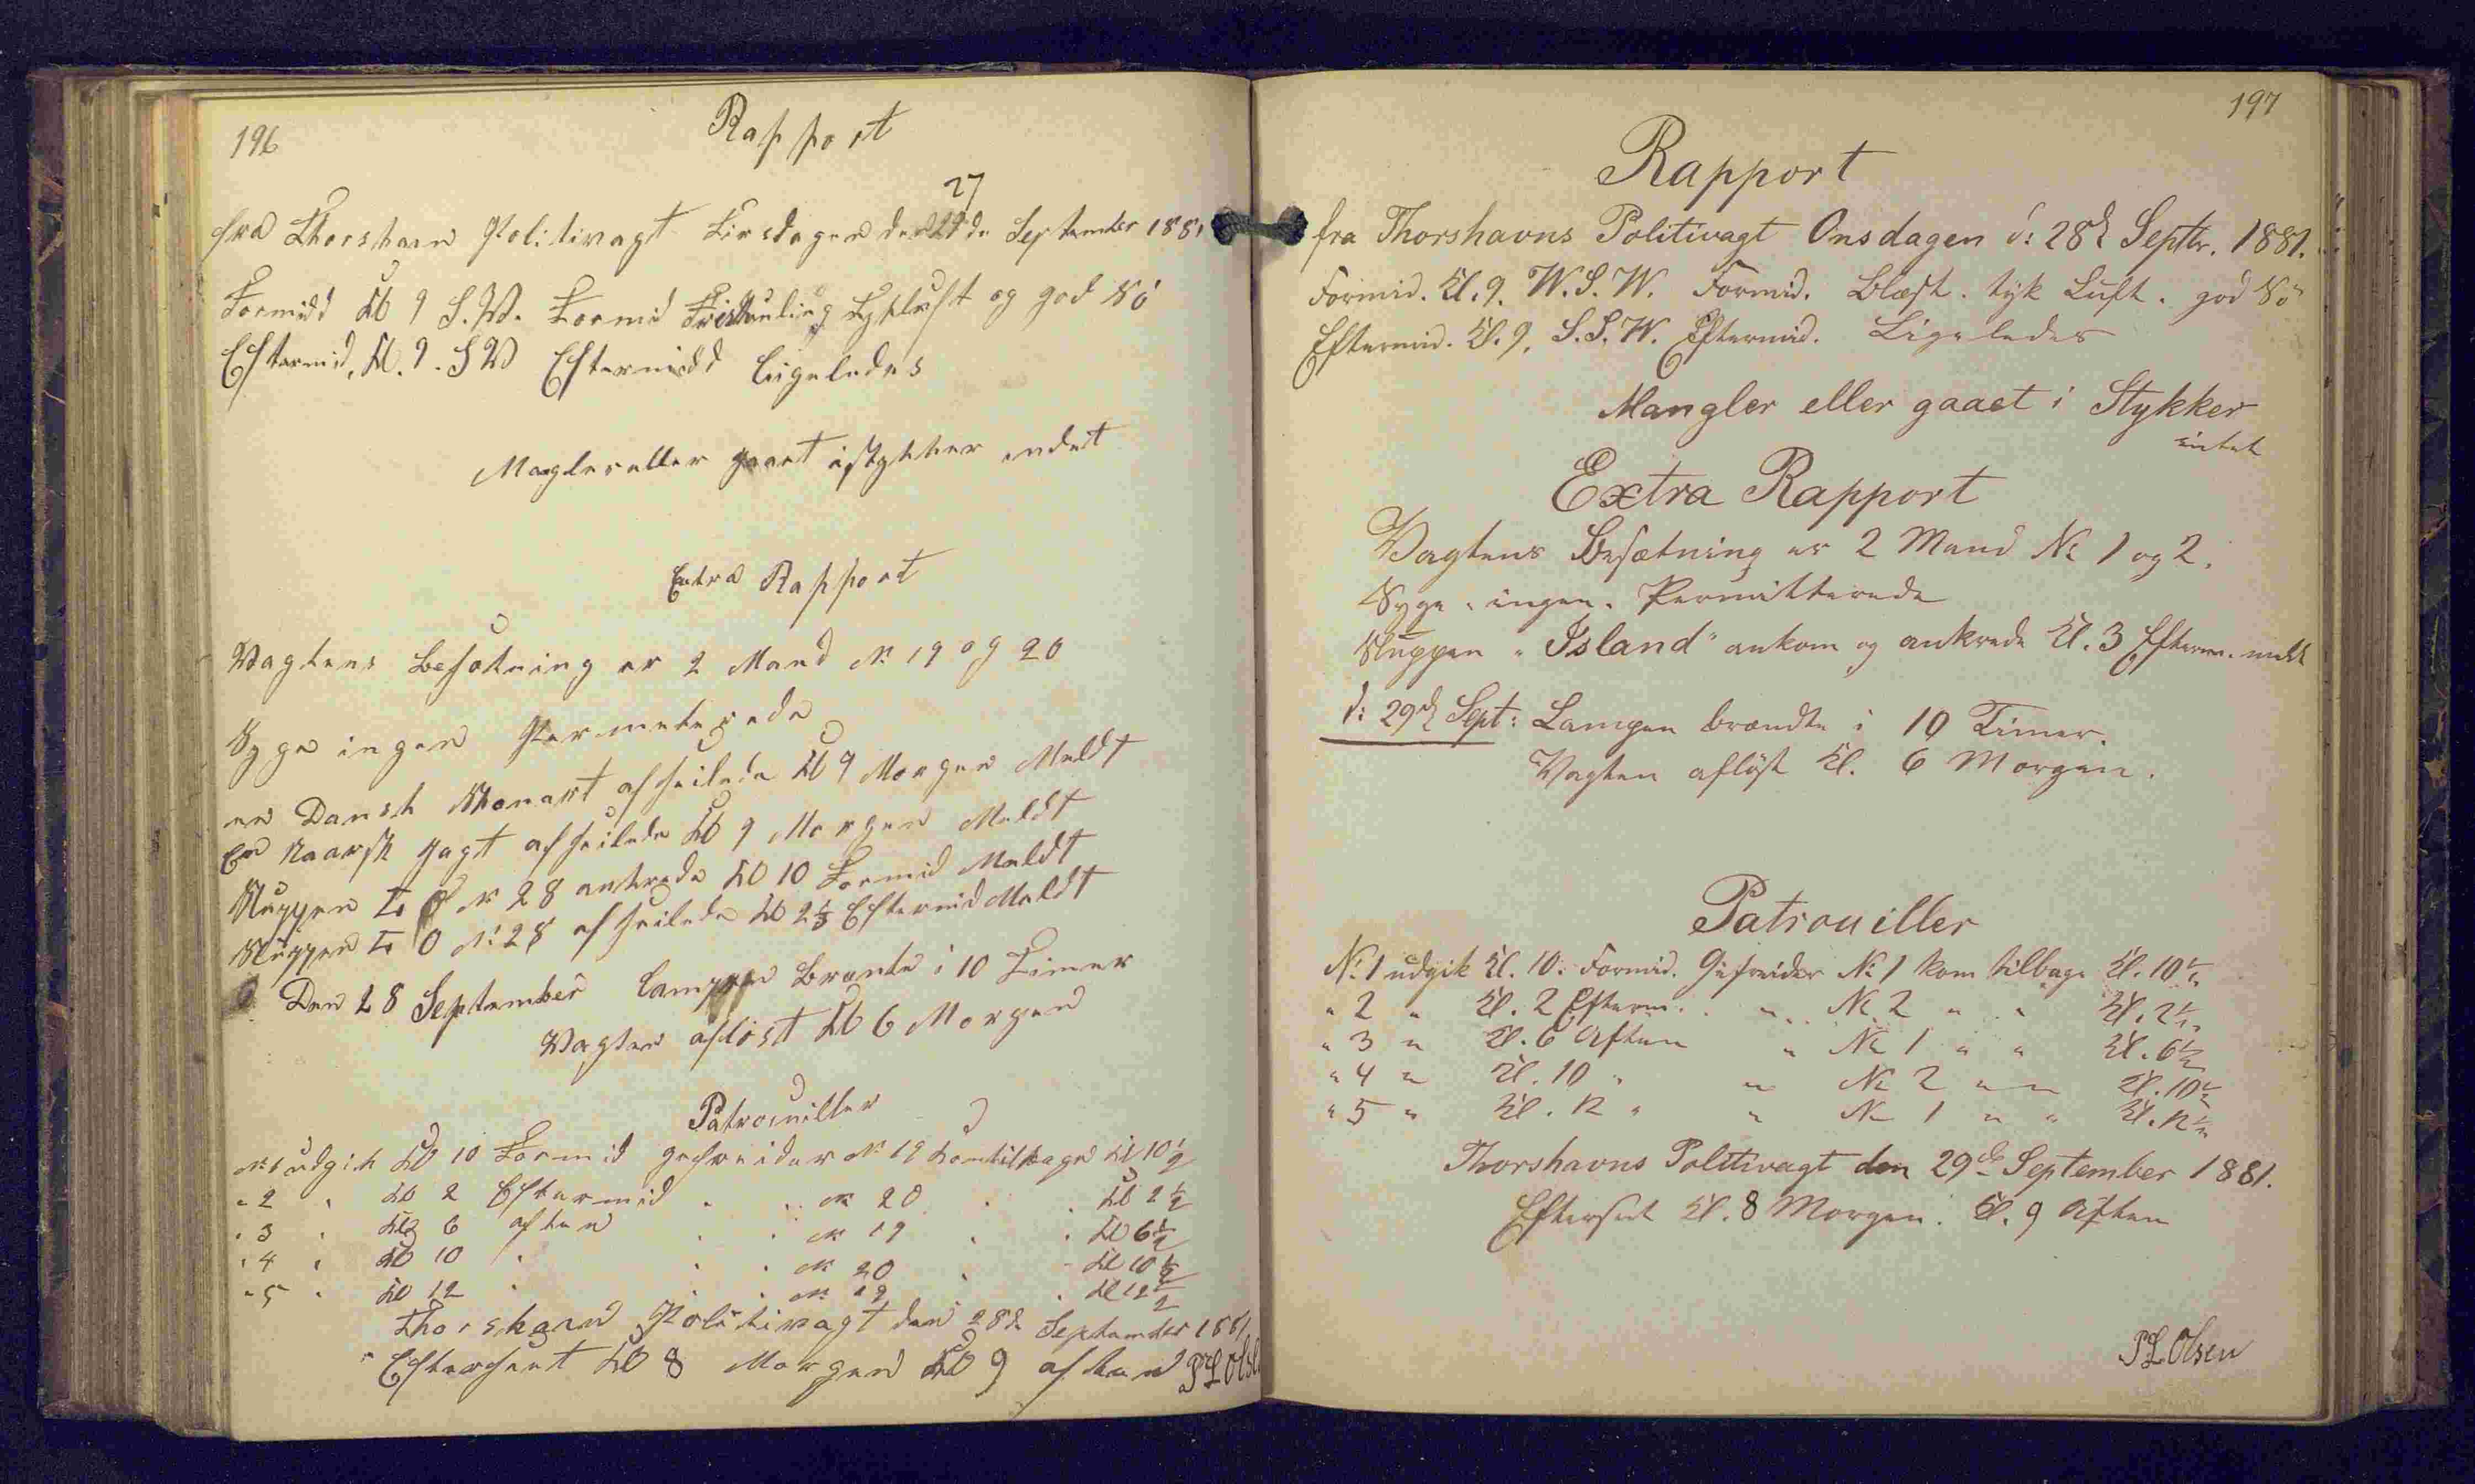 196
Rapport
27
fra Thorshavn Politivagt Tirsdagen den de September 1881
Formidd Kl 9 S.W. Formid Friskkuling Tykluft og god Sö
Eftermid. Kl. 9. S W Eftermidd Ligeledes
Magler eller gaaet istykker indet
Extra Rapport
Vagtens Besætning er 2 Mand N: 19 og 20
Syge ingen Permeterede
en Dansk Skonart afseilede Kl 9 Morgen Meldt
En Naarsk Jagt afseilede Kl 9 Morgen Meldt
Sluppen To O N 28 ankrede Kl 10 Formid Meldt
Sluppen To O N: 28 afseilede Kl 2½ Eftermid Meldt
Den 28 September Lampen Brante i 10 Timer
Vagten aflöst Kl 6 Morgen
Patrouiller
N: 1 udgik Kl 10 Formid gefreider N: 19 komtilbage Kl 10½
" 2 " Kl 2 Eftermid " " N: 20 " " Kl 2½
" 3 " Kl 6 aften " " N 19 " " Kl 6½
" 4 " Kl 10 " " " N: 20 " " Kl 10½
" 5 " Kl 12 " " " N: 19 " " Kl 12½
Thorshavn Politivagt den 28de September 1881
Efterseet Kl 8 Morgen Kl 9 aften P L Olsen
197
Rapport
fra Thorshavns Politivagt Onsdagen d: 28d Septbr. 1881.
Formid. Kl. 9. W.S.W. Formid. Blæst. tyk Luft. god Sö
Eftermid. Kl. 9. S.S.W. Eftermid. Ligeledes
Mangler eller gaaet i Stykker
intet
Extra Rapport
Vagtens Besætning er 2 Mand No 1 og 2.
Syge " ingen. Permitterede
Sluppen "Island" ankom og ankrede Kl. 3 Efterm. meldt
d: 29d Sept: Lampen brændte i 10 Timer.
Vagten aflöst Kl. 6 Morgen.
Patrouiller
No 1 udgik Kl. 10. Formid. Gefreider No 1 kom tilbage Kl. 10½
" 2 " Kl. 2 Efterm. " No 2 " " Kl. 2½
" 3 " Kl. 6 Aften " No 1 " " Kl. 6½
" 4 " Kl. 10 " " No 2 " " Kl. 10½
" 5 " Kl. 12 " " No 1 " " Kl. 12½
Thorshavns Politivagt den 29de September 1881.
Efterseet Kl. 8 Morgen. Kl. 9 Aften
P L Olsen